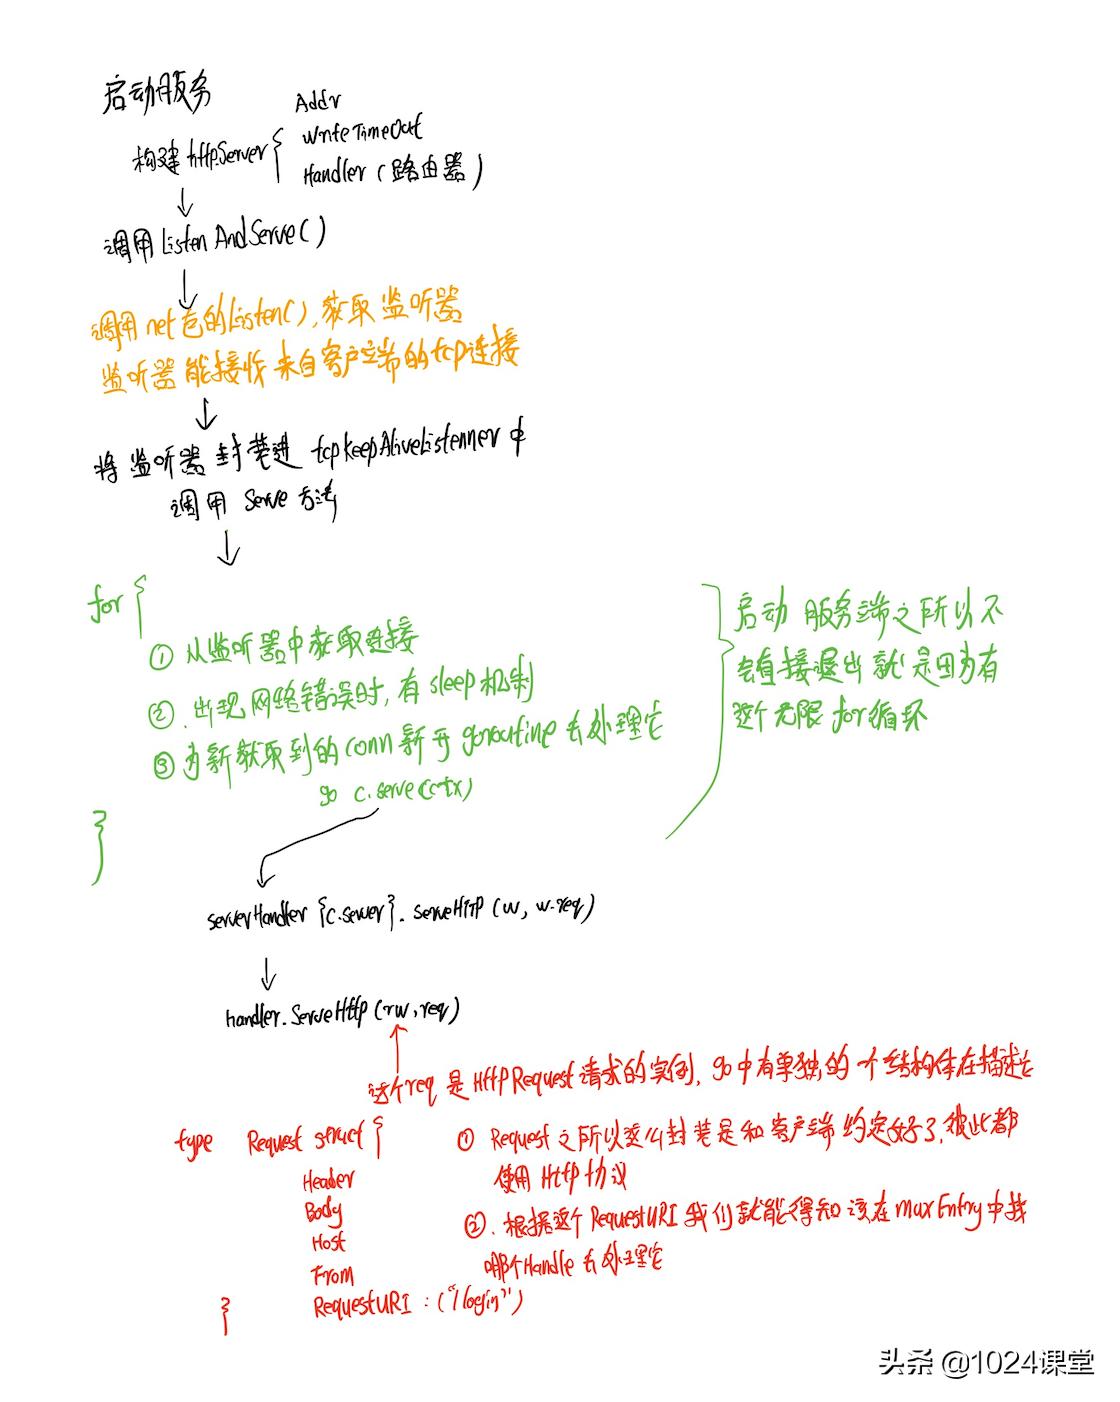 启动服务
构建 httpServer {
Addr
WriteTimeOut
Handler (路由器)
调用 ListenAndServe()
调用net包的Listen(),获取监听器
监听器能接收来自客户端的tcp连接
将监听器封装进 tcpKeepAliveListenner中
调用 Serve 方法
for {
① 从监听器中获取连接
②. 出现网络错误时, 有 sleep 机制
③ 为新获取到的conn新开goroutine去处理它
go c.serve(ctx)
}
启动服务端之所以不
会直接退出就是因为有
这个无限for循环
serverHandler {c.server}.serveHTTP (w, w.req)
handler.ServeHttp (rw,req)
这个req 是 HttpRequest 请求的实例, go中有单独的一个结构体在描述它
type Request struct {
Header
Body
Host
From
RequestURI : ("/login")
}
① Request 之所以这么封装是和客户端约定好了,彼此都
使用 Http 协议
②. 根据这个RequestURI 我们就能得知该在muxEntry中找
哪个Handle去处理它
头条 @1024课堂